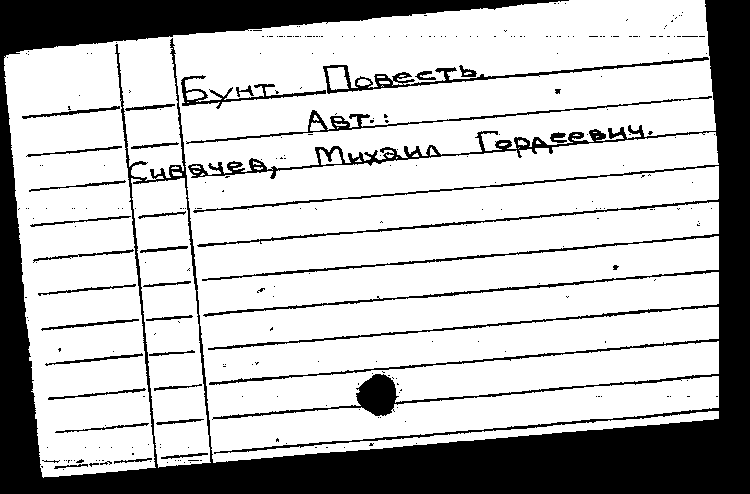 Бунт. Повесть.
Авт.:
Сивачев, Михаил Гордеевич.